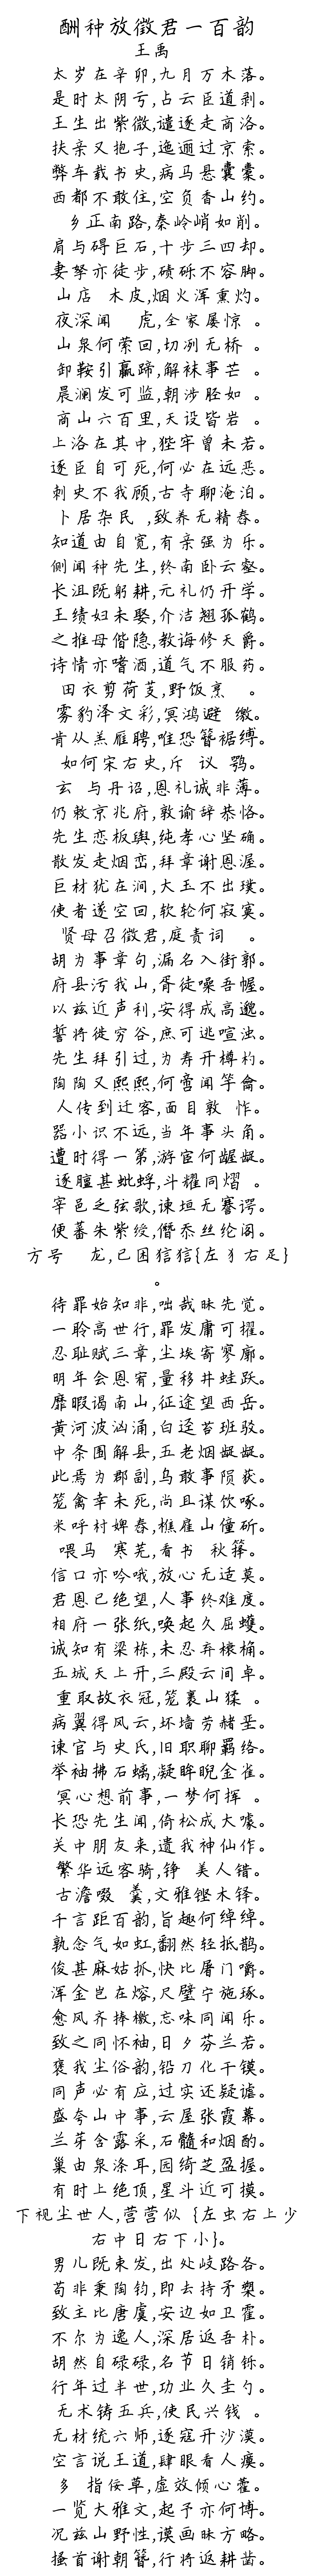 酬种放徵君一百韵
王禹
太岁在辛卯,九月万木落。
是时太阴亏,占云臣道剥。
王生出紫微,谴逐走商洛。
扶亲又抱子,迤逦过京索。
弊车载书史,病马悬囊橐。
西都不敢住,空负香山约。
乡正南路,秦岭峭如削。
肩与碍巨石,十步三四却。
妻孥亦徒步,碛砾不容脚。
山店 木皮,烟火浑熏灼。
夜深闻 虎,全家屡惊 。
山泉何萦回,切冽无桥 。
卸鞍引羸蹄,解袜事芒 。
晨澜发可监,朝涉胫如 。
商山六百里,天设皆岩 。
上洛在其中,狴牢曾未若。
逐臣自可死,何必在远恶。
刺史不我顾,古寺聊淹泊。
卜居杂民 ,致养无精舂。
知道由自宽,有亲强为乐。
侧闻种先生,终南卧云壑。
长沮既躬耕,元礼仍开学。
王绩妇未娶,介洁翘孤鹤。
之推母偕隐,教诲修天爵。
诗情亦嗜酒,道气不服药。
田衣剪荷芰,野饭烹 。
雾豹泽文彩,冥鸿避 缴。
肯从羔雁聘,唯恐簪裾缚。
如何宋右史,斥 议 鹗。
玄 与丹诏,恩礼诚非薄。
仍敕京兆府,敦谕辞恭恪。
先生恋板舆,纯孝心坚确。
散发走烟峦,拜章谢恩渥。
巨材犹在涧,大玉不出璞。
使者遂空回,软轮何寂寞。
贤母召徵君,庭责词 。
胡为事章句,漏名入街郭。
府县污我山,胥徒嗓吾幄。
以兹近声利,安得成高邈。
誓将徙穷谷,庶可逃喧浊。
先生拜引过,为寿开樽杓。
陶陶又熙熙,何啻闻竽龠。
人传到迁客,面目敦 怍。
器小识不远,当年事头角。
遭时得一第,游宦何龌龊。
逐膻甚蚍蜉,斗耀同熠 。
宰邑乏弦歌,谏垣无謇谔。
便蕃朱紫绶,僭忝丝纶阁。
方号 龙,已困狺狺{左犭右足}
。
待罪始知非,咄哉昧先觉。
一聆高世行,罪发庸可擢。
忍耻赋三章,尘埃寄寥廓。
明年会恩宥,量移井蛙跃。
靡暇谒南山,征途望西岳。
黄河波汹涌,白迳苔班驳。
中条围解县,五老烟龊龊。
此焉为郡副,乌敢事陨获。
笼禽幸未死,尚且谋饮啄。
米呼村婢舂,樵雇山僮斫。
喂马 寒芜,看书 秋箨。
信口亦吟哦,放心无适莫。
君恩已绝望,人事终难度。
相府一张纸,唤起久屈蠖。
诚知有梁栋,未忍弃榱桷。
五城天上开,三殿云间卓。
重取故衣冠,笼裹山猱 。
病翼得风云,坏墙劳赭垩。
谏官与史氏,旧职聊羁络。
举袖拂石螭,凝眸睨金雀。
冥心想前事,一梦何挥 。
长恐先生闻,倚松成大噱。
关中朋友来,遗我神仙作。
繁华远客骑,铮 美人错。
古澹啜 羹,文雅铿木铎。
千言距百韵,旨趣何绰绰。
孰念气如虹,翻然轻抵鹊。
俊甚麻姑抓,快比屠门嚼。
浑金岂在熔,尺璧宁施琢。
愈风齐捧檄,忘味同闻乐。
致之同怀袖,日夕芬兰若。
褒我尘俗韵,铅刀化干镆。
同声必有应,过实还疑谑。
盛夸山中事,云屋张霞幕。
兰芽含露采,石髓和烟酌。
巢由泉涤耳,园绮芝盈握。
有时上绝顶,星斗近可摸。
下视尘世人,营营似 {左虫右上少
右中日右下小}。
男儿既束发,出处歧路各。
苟非秉陶钧,即去持矛槊。
致主比唐虞,安边如卫霍。
不尔为逸人,深居返吾朴。
胡然自碌碌,名节日销铄。
行年过半世,功业久圭勺。
无术铸五兵,使民兴钱 。
无材统六师,逐寇开沙漠。
空言说王道,肆眼看人瘼。
多 指佞草,虚效倾心藿。
一览大雅文,起予亦何博。
况兹山野性,谟画昧方略。
搔首谢朝簪,行将返耕凿。